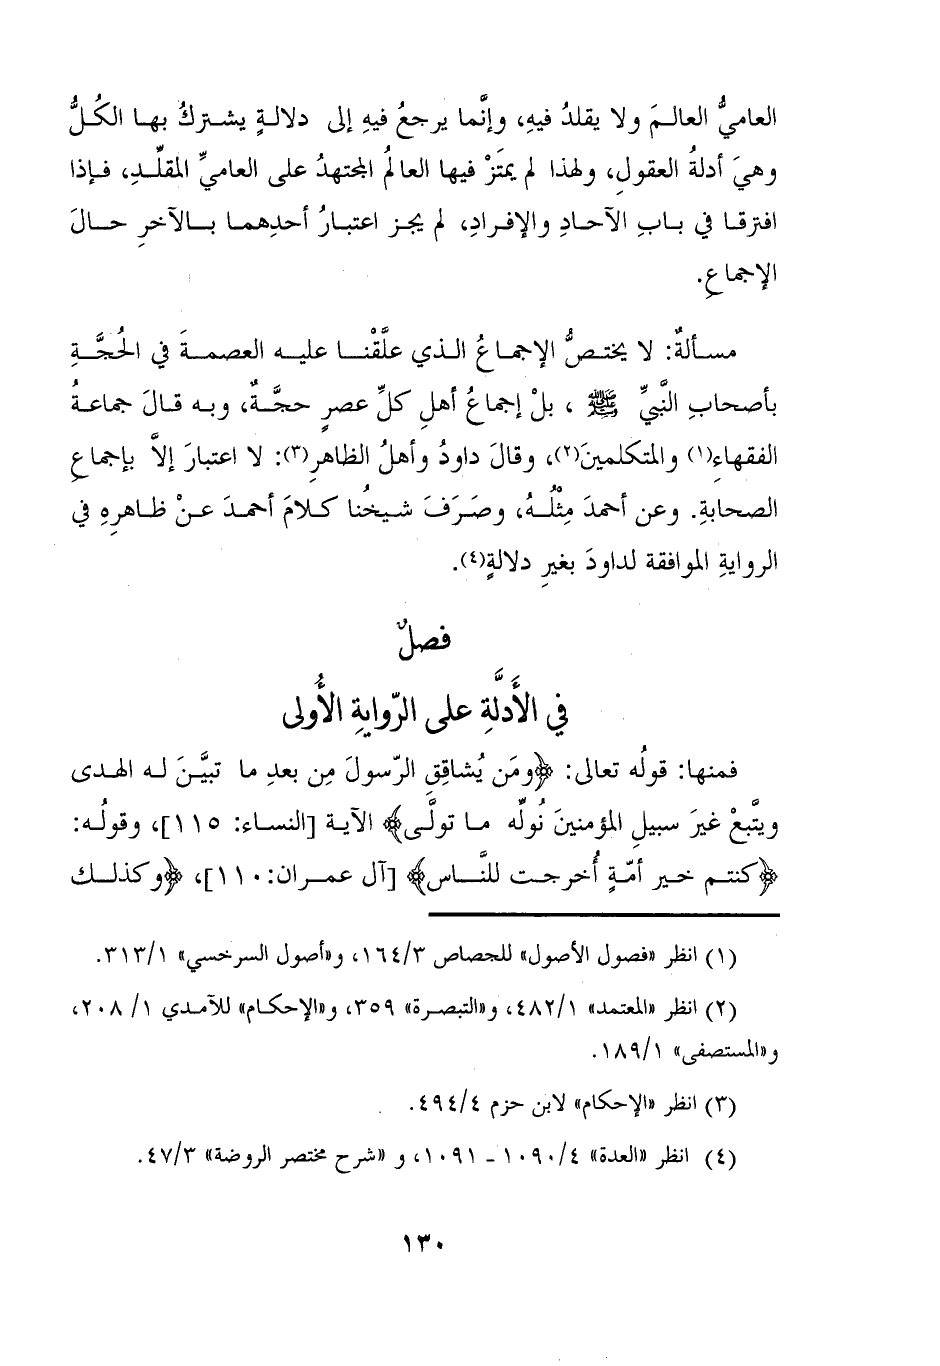 العاميُّ العالمَ ولا يقلدُ فيهِ، وإنَّما يرجعُ فيهِ إلى دلالةٍ يشتركُ بها الكُلُّ
وهيَ أدلةُ العقولِ، ولهذا لم يمتَزْ فيها العالمُ المجتهدُ على العاميِّ المقلِّدِ، فإذا
افترقا في بابِ الآحادِ والإفرادِ، لم يجز اعتبارُ أحدِهما بالآخرِ حالَ
الإجماعِ.
مسألةٌ: لا يختصُّ الإجماعُ الذي علَّقْنا عليه العصمةَ في الحُجَّةِ
بأصحابِ النَّبيِّ ﷺ ، بلْ إجماعُ أهلِ كلِّ عصرٍ حجَّةٌ، وبه قالَ جماعةُ
الفقهاءِ(١) والمتكلمينَ(٢)، وقالَ داودُ وأهلُ الظاهرِ(٣): لا اعتبارَ إلاَّ بإجماعِ
الصحابةِ. وعن أحمدَ مِثْلُهُ، وصَرَفَ شيخُنا كلامَ أحمدَ عنْ ظاهرِهِ في
الروايةِ الموافقة لداودَ بغيرِ دلالةٍ(٤).
فصلٌ
في الأَدلَّةِ على الرّوايةِ الأُولى
فمنها: قولُه تعالى: ﴿ومَن يُشاقِقِ الرّسولَ مِن بعدِ ما تبيَّنَ له الهدى
ويتَّبعْ غيرَ سبيلِ المؤمنينَ نُولِّه ما تولَّى﴾ الآية [النساء: ١١٥]، وقولُه:
﴿كنتم خير أمّةٍ أُخرجت للنَّاس﴾ [آل عمران:١١٠]، ﴿وكذلك
(١) انظر «فصول الأصول» للجصاص ١٦٤/٣، و«أصول السرخسي» ٣١٣/١.
(٢) انظر «المعتمد» ٤٨٢/١، و«التبصرة» ٣٥٩، و«الإحكام» للآمدي ١/ ٢٠٨،
و«المستصفى» ١٨٩/١.
(٣) انظر «الإحكام» لابن حزم ٤٩٤/٤.
(٤) انظر «العدة» ١٠٩٠/٤ - ١٠٩١، و «شرح مختصر الروضة» ٤٧/٣.
١٣٠